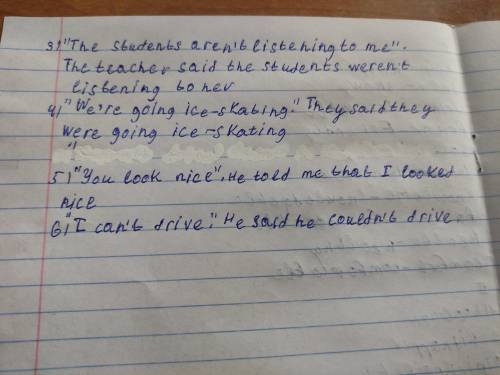 3) "The students aren't listening to me".
The teacher said the students weren't
listening to her
4) "We're going ice-skating." They said they
were going ice-skating
"
5) "You look nice". He told me that I looked
nice
6) "I can't drive." He said he couldn't drive